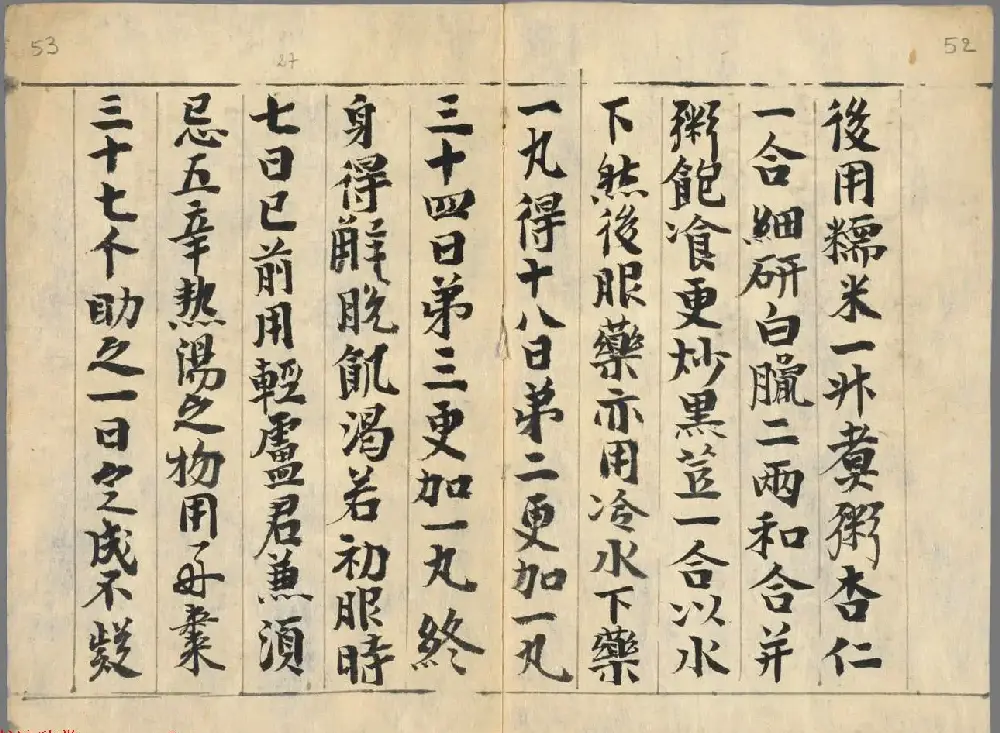 52
後用糯米一升煮粥杏仁
一合細研白臈二兩和合并
粥飽飡更炒黑荳一合以水
下然後服藥亦用冷水下藥
一丸得十八日弟二更加一丸
53
27
三十四日弟三更加一丸終
身得解脱飢渴若初服時
七日已前用輕盧君兼須
忌五辛熱湯之物用好棗
三十七个助之一日之成不疑